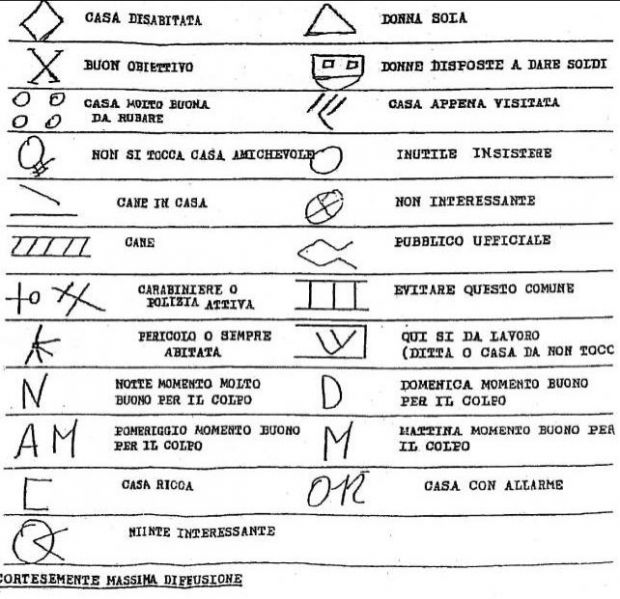 CASA DISABITATA
DONNA SOLA
X
BUON OBIETTIVO
DONNE DISPOSTE A DARE SOLDI
CASA MOLTO BUONA
DA RUBARE
CASA APPENA VISITATA
NON SI TOCCA CASA AMICHEVOLE
INUTILE INSISTERE
CANE IN CASA
NON INTERESSANTE
CANE
PUBBLICO UFFICIALE
CARABINIERE O
POLIZIA ATTIVA
EVITARE QUESTO COMUNE
PERICOLO O SEMPRE
ABITATA
QUI SI DA LAVORO
(DITTA O CASA DA NON TOCC
N
NOTTE MOMENTO MOLTO
BUONO PER IL COLPO
D
DOMENICA MOMENTO BUONO
PER IL COLPO
AM
POMERIGGIO MOMENTO BUONO
PER IL COLPO
M
MATTINA MOMENTO BUONO PER
IL COLPO
CASA RICCA
OR
CASA CON ALLARME
NIINTE INTERESSANTE
CORTESEMENTE MASSIMA DIFFUSIONE